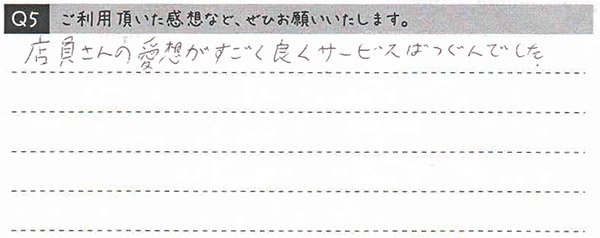 Q5 ご利用頂いた感想など、ぜひお願いいたします。
店員さんの愛想がすごく良くサービスばつぐんでした